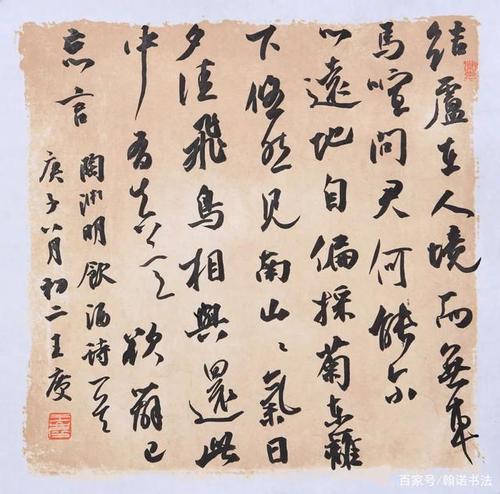 結廬在人境而無車
馬喧問君何能尔
心遠地自偏採菊东籬
下悠然見南山々氣日
夕佳飛鳥相與還此
中有真意欲辯已
忘言
陶渊明飲酒詩一首
庚子八月初二王
百家号/翰诺书法